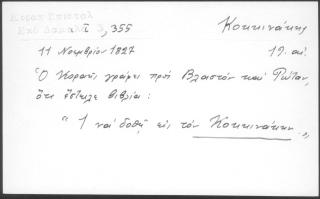 Κοραή Επιστολ
Εκδ Δαμαλᾶ 3, 355
Κοκκινάκης
11 Νοεμβρίου 1827
19. αι.
Ὁ Κοραῆς γράφει πρὸς Βλαστὸν καὶ
ὅτι ἔστειλε βιβλία :
"1 νὰ δοθῇ εἰς τὸν Κοκκινάκην."